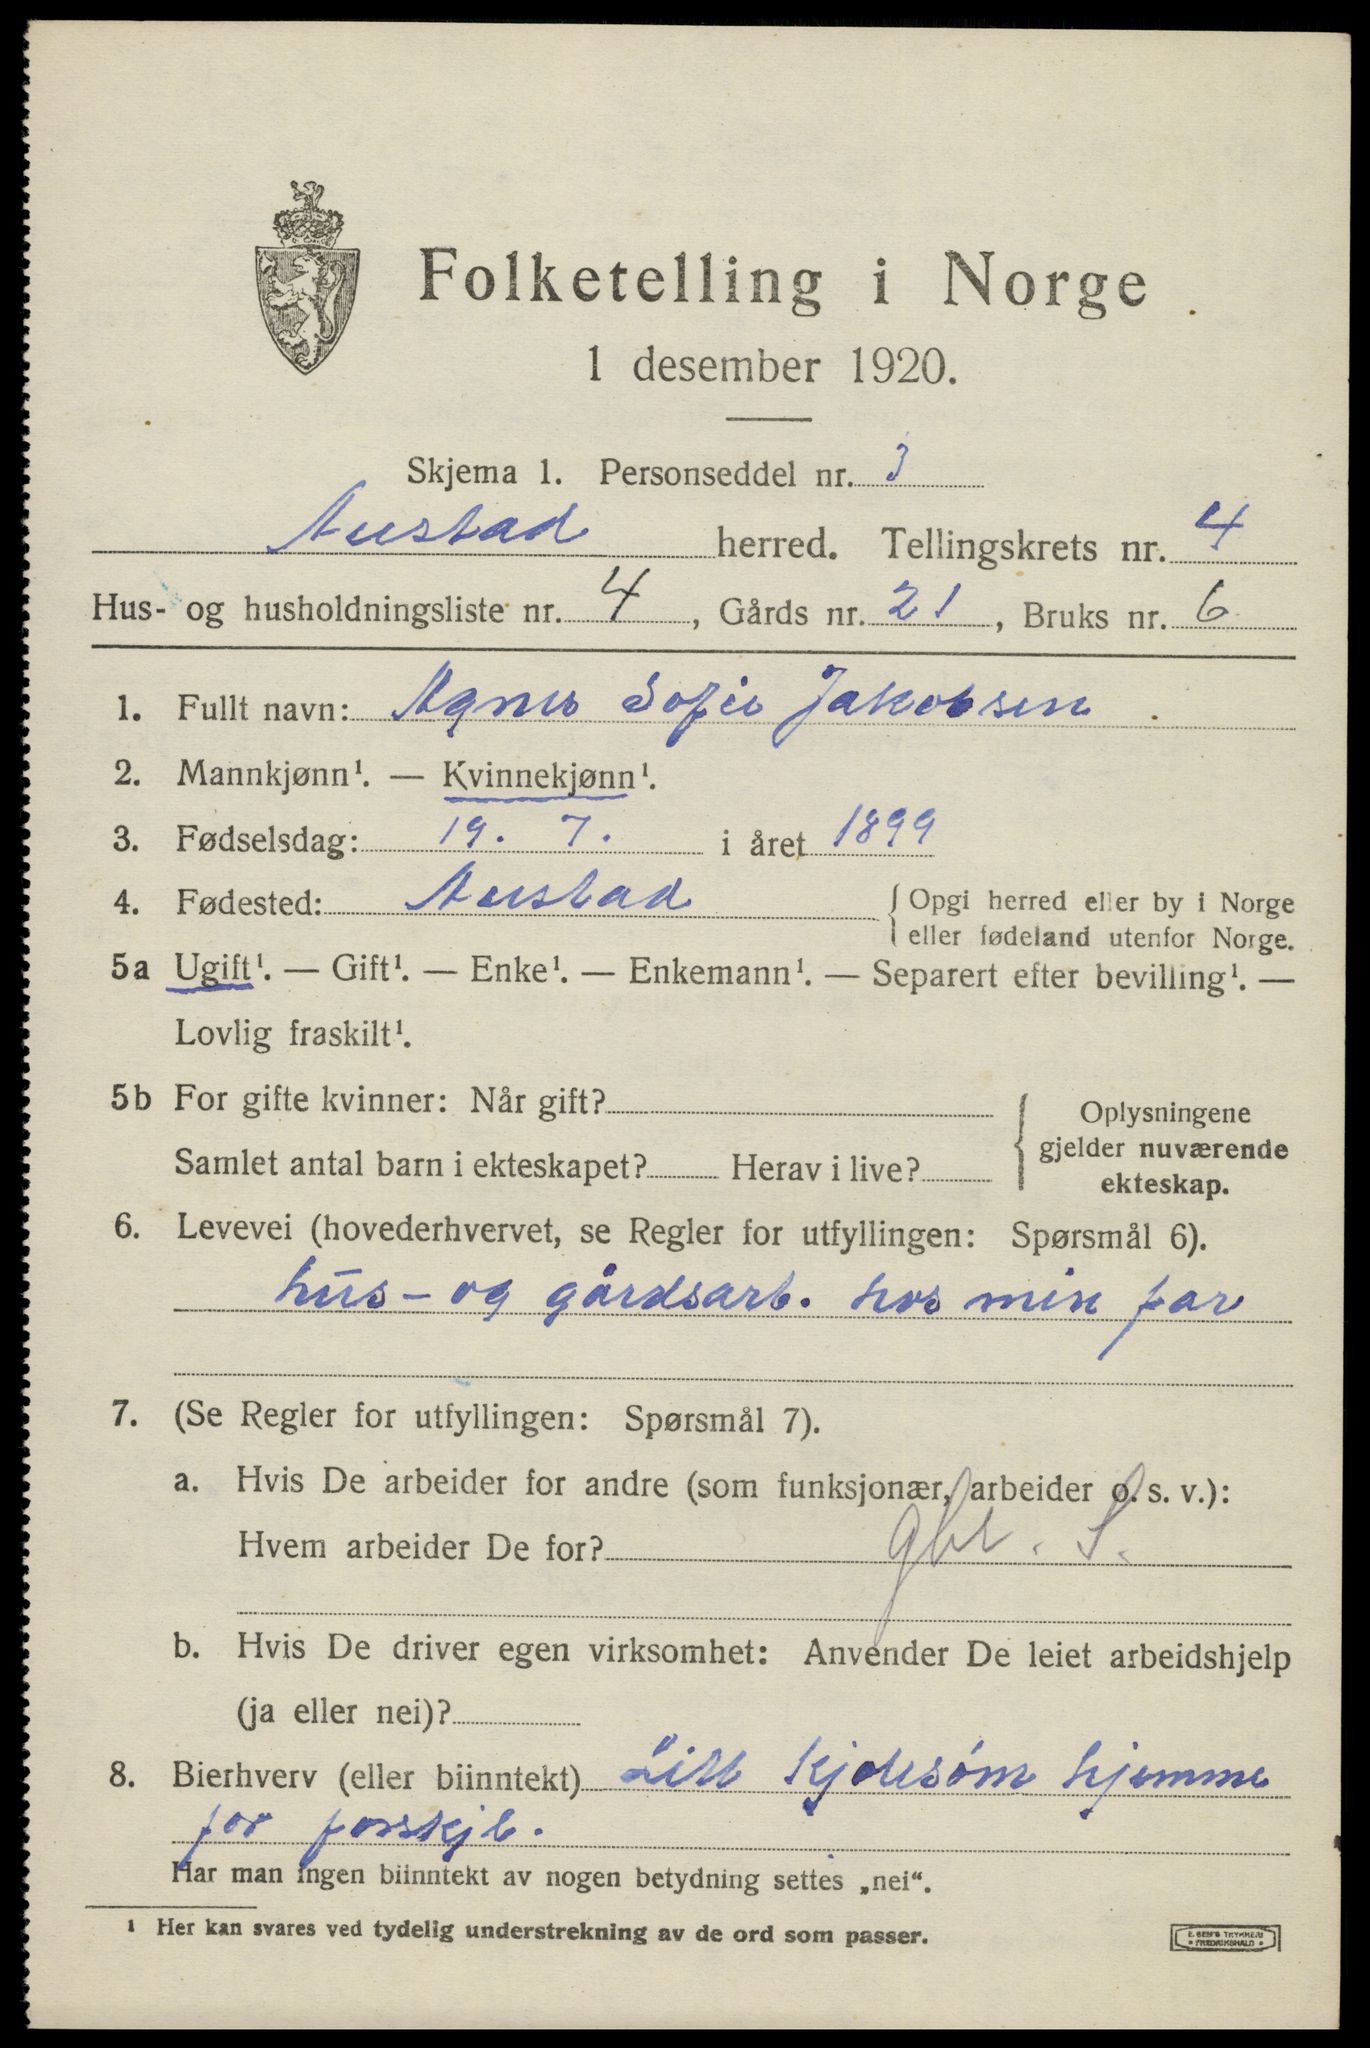 Folketelling i Norge
1 desember 1920.
Skjema 1. Personseddel nr. 3
Austad herred. Tellingskrets nr. 4
Hus- og husholdningsliste nr. 4, Gårds nr. 21, Bruks nr. 6
1. Fullt navn: Agnes Sofie Jakobsen
2. Mannkjønn¹. — Kvinnekjønn¹.
3. Fødselsdag: 19. 7. i året 1899
4. Fødested: Austad { Opgi herred eller by i Norge
eller fødeland utenfor Norge.
5a Ugift¹. — Gift¹. — Enke¹. — Enkemann¹. — Separert efter bevilling¹. —
Lovlig fraskilt¹.
5b For gifte kvinner: Når gift? { Oplysningene
gjelder nuværende
Samlet antal barn i ekteskapet? Herav i live?
ekteskap.
6. Levevei (hovederhvervet, se Regler for utfyllingen: Spørsmål 6).
hus- og gårdsarb. hos min far
7. (Se Regler for utfyllingen: Spørsmål 7).
a. Hvis De arbeider for andre (som funksjonær, arbeider o. s. v.):
Hvem arbeider De for? gbr. S.
b. Hvis De driver egen virksomhet: Anvender De leiet arbeidshjelp
(ja eller nei)?
8. Bierhverv (eller biinntekt) Litt kjolesøm hjemme
for forskjl.
Har man ingen biinntekt av nogen betydning settes „nei“.
¹ Her kan svares ved tydelig understrekning av de ord som passer.
E. SEM'S TRYKKERI
• FREDRIKSHALD •